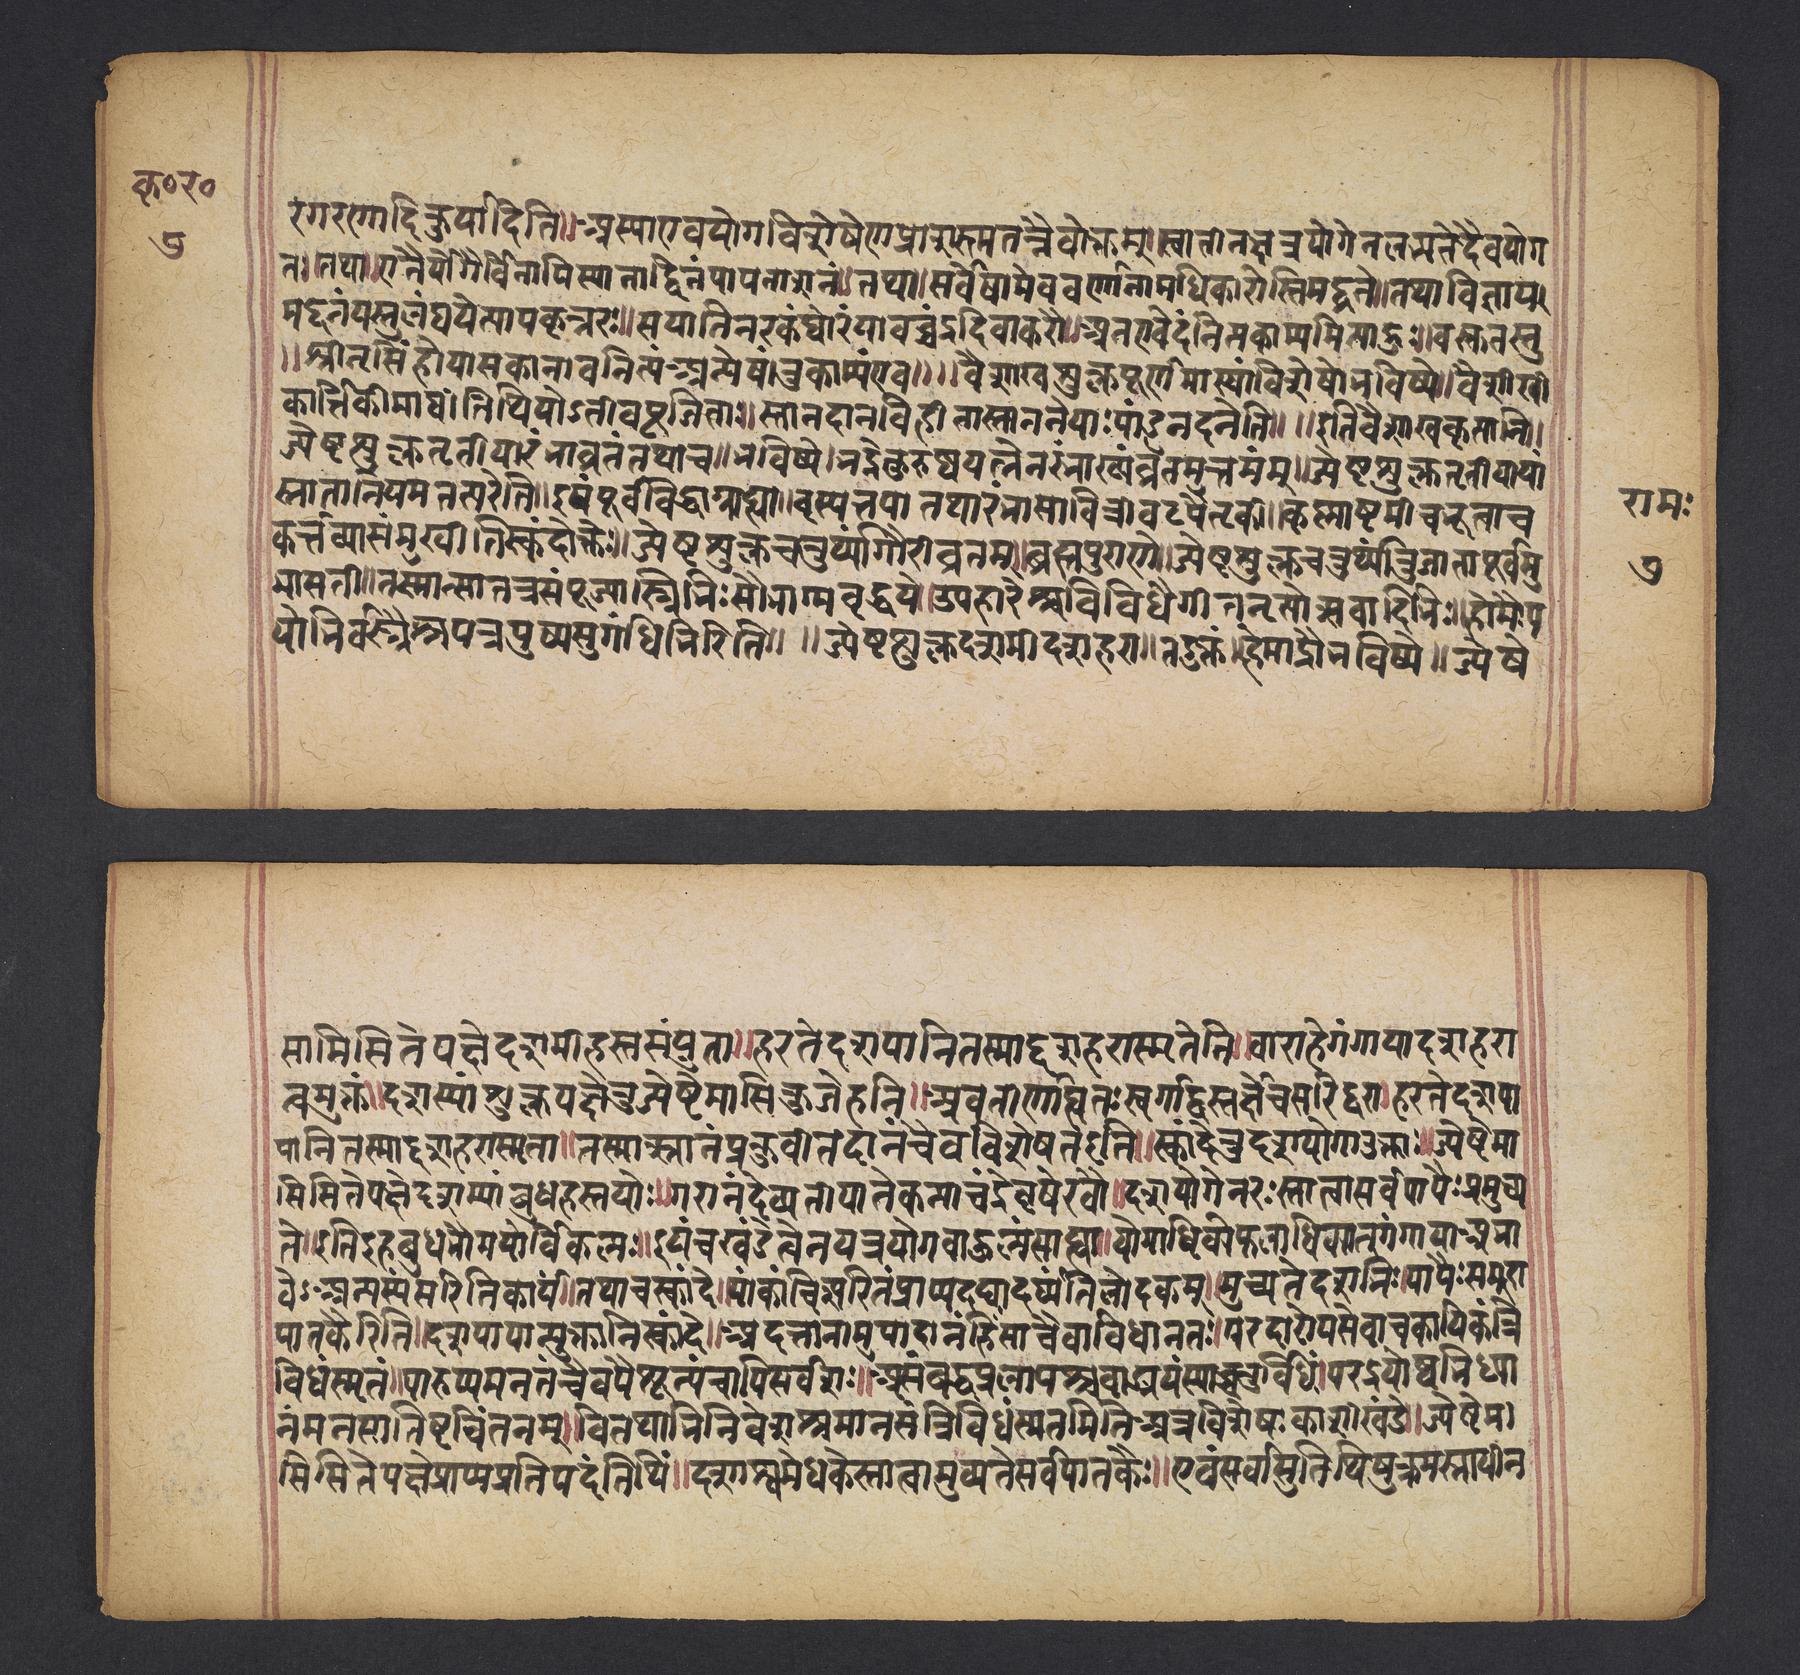 कृ॰र॰
७
रंगरणादिकुर्यादिति॥अस्याएवयोगविशेषेणप्राशस्त्यमतत्रैवोक्तम्॥स्वातीनक्षत्रयोगेनलभ्यतेदैवयोग
तः।तथा।एतैर्योगैर्विनापिस्यात्तद्दिनंपापनाशनं॥तथा॥सर्वेषामेववर्णानामधिकारोस्तिमद्व्रते॥तथाविज्ञाय
मद्दिनंयस्तुलंघयेत्पापकृन्नरः॥सयातिनरकंघोरंयावच्चंद्रदिवाकरौ॥अतएवेदंनित्यकाम्यमित्याहुः॥वस्तुतस्तु
॥श्रीनृसिंहोपासकानावनित्यंअन्येषांतुकाम्यंएव॥॥वैशाखशुक्लपूर्णिमास्यांविशेषोभविष्ये॥वैशाखी
कार्त्तिकीमाघीतिथियोऽतीवपूजिताः॥स्नानदानविहीनास्ताननेयाःपांडुनंदनेति॥॥इतिवैशाखकृत्यानि॥
ज्येष्ठशुक्लतृतीयारंभाव्रतंतथाच॥भविष्ये।भद्रेकुरुष्वयत्नेनरंभाख्यंव्रतमुत्तमम्॥ज्येष्ठशुक्लतृतीयायां
स्नातानियमतत्परेति॥इयंपूर्वविद्धाग्राह्या॥बृहत्तपातथारंभासावित्रीवटपैतृकी॥कृष्णाष्टमीचभूताच
कर्त्तव्यासंमुखीतिस्कंदोक्तेः॥ज्येष्ठशुक्लचतुर्थ्यांगौरीव्रतम्॥ब्रह्मपुराणे॥ज्येष्ठशुक्लचतुर्थ्यांतुजातापूर्वमु
मासती॥तस्मात्सातत्रसंपूज्यास्त्रीभिःसौभाग्यवृद्धये॥उपहारैश्चविविधैर्गीतनृत्योत्सवादिभिः॥होमैःप
योभिवस्त्रैश्चपत्रपुष्पसुगंधिभिरिति॥॥ज्येष्ठशुक्लदशमीदशहरा॥तदुक्तं॥हेमाद्रौभविष्ये॥ज्येष्ठे
रामः
७
मासिसितेपक्षेदशमीहस्तसंयुता॥हरतेदशपापानितस्माद्दशहरास्मृतेति॥वाराहेगंगायादशहरा
त्वमुक्तं॥दशम्यांशुक्लपक्षेतुज्येष्ठेमासिकुजेहनि॥अवतीर्णायतःस्वर्गाद्धिस्तर्क्षेचसरिद्वरा॥हरतेदशपा
पानितस्माद्दशहरास्मृता॥तस्मात्स्नानंप्रकुर्वीतदानंचैवविशेषतइति॥स्कांदेतुदशयोगाउक्ताः॥ज्येष्ठेमा
सिसितेपक्षेदशम्यांबुधहस्तयोः॥गरानंदेव्यतीपातेकन्याचंद्रेवृषेरवौ॥दशयोगेनरःस्नात्वासर्वपापैःप्रमुच्य
ते॥इतिइहबुधभौमयोर्विकल्पः॥इयंचखंडत्वेनयत्रयोगबाहुल्यंसाग्राह्या॥योगाधिक्येफलाधिक्यात्गंगायाअभा
वेऽअन्यस्यंसरितिकार्या॥तथाचस्कांदे॥यांकांचित्सरितंप्राप्यदद्याद्दर्भ्यंतिलोदकम्॥मुच्यतेदशभिःपापैःसमहा
पातकैरिति॥दशपापान्युक्तानिस्कांदे॥अदत्तानामुपादानंहिंसाचैवाविधानतः।परदारोपसेवाचकायिकंत्रि
विधंस्मृतं॥पारुष्यमनृतंचैवपैशून्यंचापिसर्वशः॥असंबद्धप्रलापश्चवाङ्मयंस्याच्चतुर्विधं॥परद्रव्येष्वभिध्या
नंमनसानिष्टचिंतनम्॥वितथाभिनिवेशश्चमानसंत्रिविधंस्मृतमितिअत्रविशेषःकाशीखंडे॥ज्येष्ठेमा
सिसितेपक्षेप्राप्यप्रतिपदंतिथिं॥दशाश्वमेधकेस्नात्वामुच्यतेसर्वपातकैः॥एवंसर्वासुतिथिषुक्रमस्नायीन